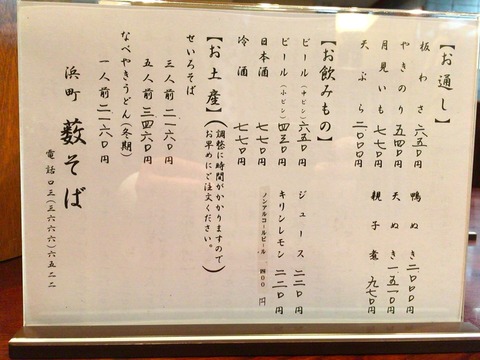 【お通し】
板わさ 六五〇円
やきのり 五四〇円
月見いも 七七〇円
天ぷら 二〇〇〇円
鴨ぬき 二〇〇〇円
天ぬき 一五一〇円
親子煮 九七〇円
【お飲みもの】
ビール(中ビン) 六五〇円
ビール(小ビン) 四三〇円
日本酒 七七〇円
冷酒 七七〇円
ジュース 二二〇円
キリンレモン 二二〇円
ノンアルコールビール 四〇〇円
【お土産】(調整に時間がかかりますので
お早めにご注文ください。)
せいろそば
三人前 二一六〇円
五人前 三四六〇円
なべやきうどん(冬期)
一人前 二一六〇円
浜町 藪そば
電話〇三(三六六六)六五二二